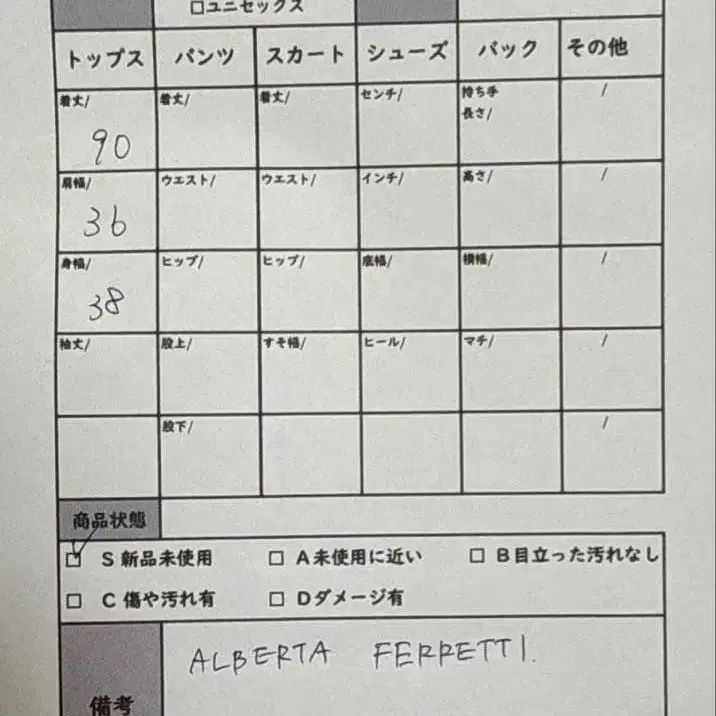 □ユニセックス
トップス パンツ スカート シューズ バック その他
着丈/ 着丈/ 着丈/ センチ/ 持ち手 /
長さ/
90
肩幅/ ウエスト/ ウエスト/ インチ/ 高さ/ /
36
身幅/ ヒップ/ ヒップ/ 底幅/ 横幅/ /
38
袖丈/ 股上/ すそ幅/ ヒール/ マチ/ /
股下/ /
商品状態
☑ S 新品未使用 □ A未使用に近い □ B目立った汚れなし
□ C 傷や汚れ有 □ Dダメージ有
ALBERTA FERRETTI.
備考